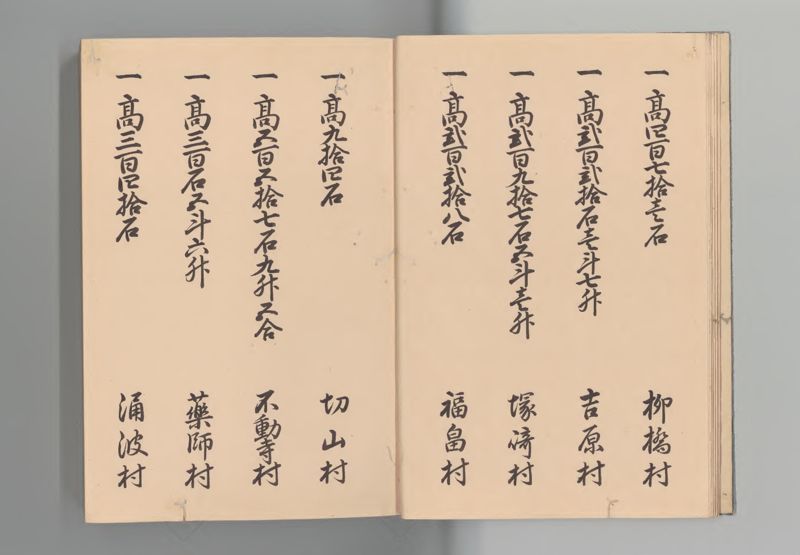 一高四百七拾壱石 柳橋村
一高弐百弐拾石壱斗七升 吉原村
一高弐百九拾七石五斗壱升 塚﨑村
一高弐百弐拾八石 福畠村
一高九拾四石 切山村
一高五百五拾七石九升五合 不動寺村
一高三百石五斗六升 藥師村
一高三百四拾石 涌波村